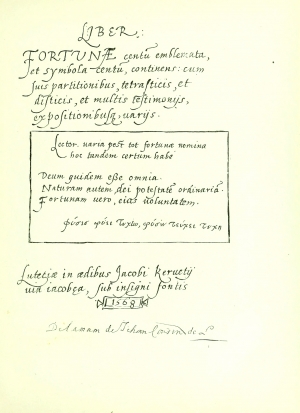 LIBER:
FORTUNÆ centū emblemata,
et symbola centū, continens: cum
suis partitionibus, tetrasticis, et
disticis, et multis testimonijs,
expositionibusq; varijs.
Lector. varia post tot fortunæ nomina
hoc tandem certum habe
Deum quidem esse omnia.
Naturam autem, dei potestatē ordinariā
Fortunam vero, eius voluntatem.
Lutetiæ in ædibus Jacobi Keruetij
via iacobea, sub insigni fontis
1568